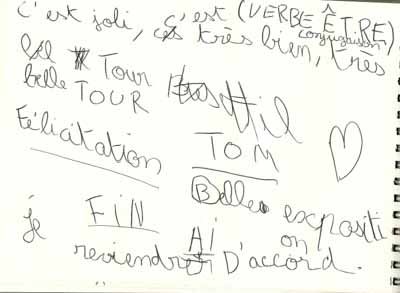 c'est joli, c'est (VERBE ÊTRE)
conjugaison
très bien, très
belle Tour
TOUR
Félicitation TOM
FIN Belle expositi
on
je reviendrai AI D'accord.